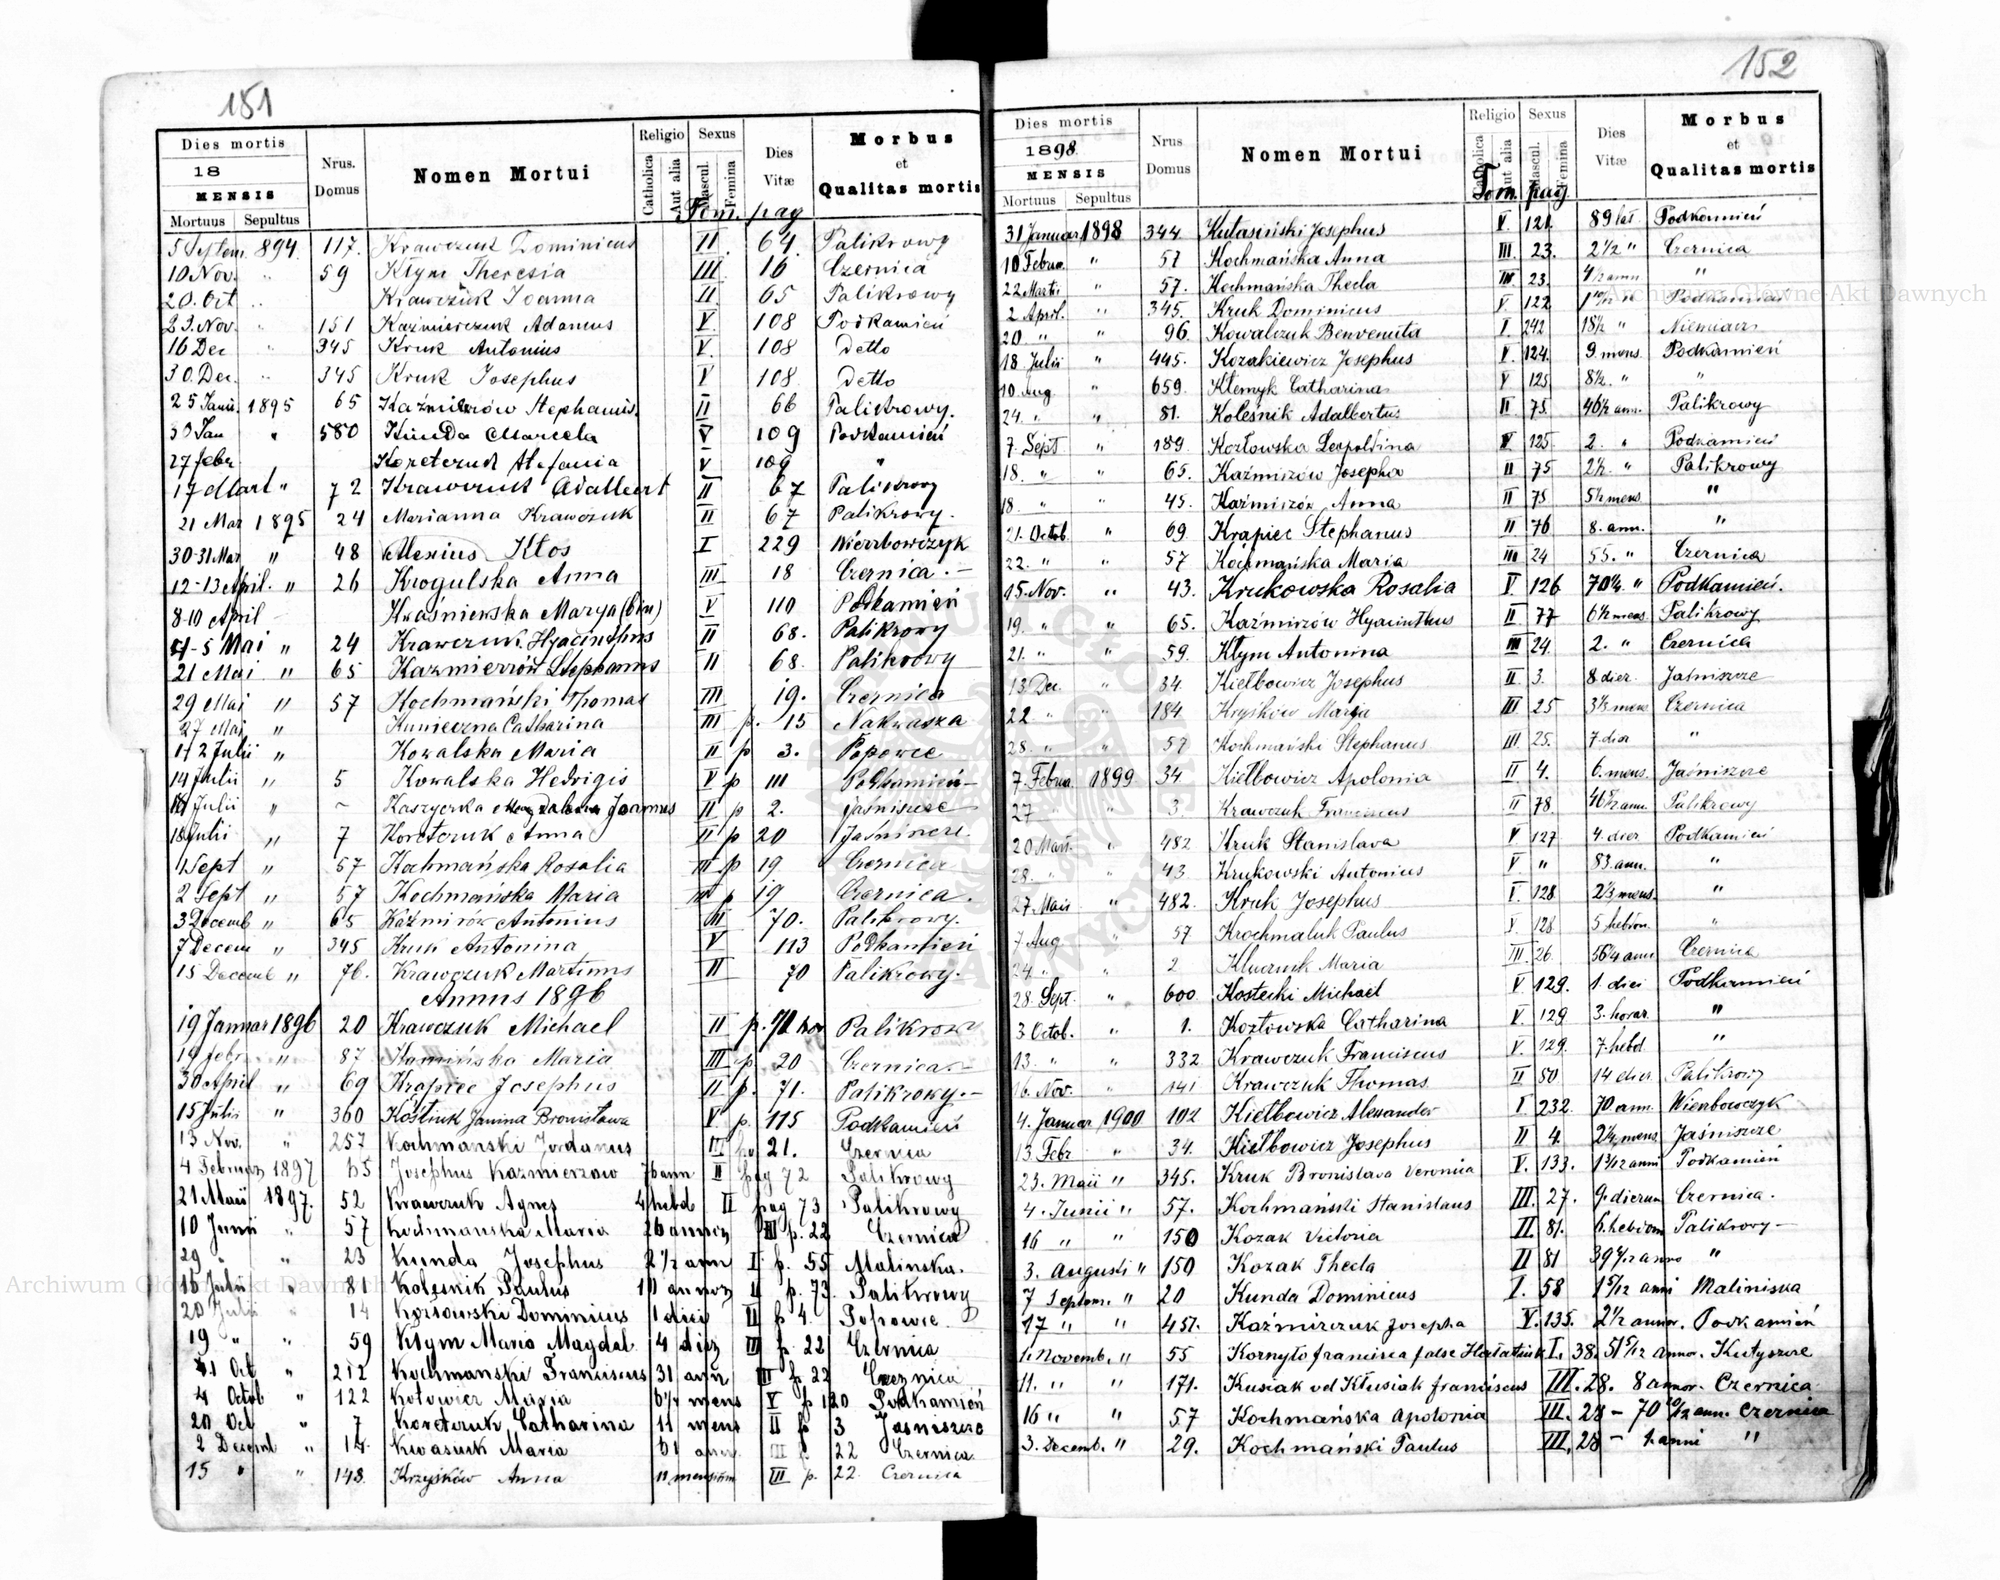 151
Dies mortis
18
MENSIS
Mortuus Sepultus
Nrus. Domus
Nomen Mortui
Religio
Catholica
Aut alia
Sexus
Mascul.
Femina
Dies Vitæ
Morbus et Qualitas mortis
Tom. pag
5 Septem 894. 117. Krawczuk Dominicus II. 64. Palikrowy
10 Nov. " 59 Kłym Theresia III 16 Czernica
20. Oct " Krawczuk Joanna II. 65 Palikrowy
23. Nov. " 151 Kaźmierczuk Adamus V. 108 Podkamień
16 Dec " 345 Kruk Antonius V. 108 Detto
30. Dec. " 345 Kruk Josephus V 108 Detto
25 Janu. 1895 65 Kaźmirów Stephanus II 66 Palikrowy.
30 Jan " 580 Kunda Marcela V 109 Podkamień
27 febr Koretczuk Stefania V 109 "
17 Mart " 72 Krawczuk Adalbert II 67 Palikrowy
21 Mar 1895 24 Marianna Krawczuk II 67 Palikrowy.
30-31 Mar " 48 Alexius Kłos I 229 Wierzbowczyk
12-13 April. " 26 Krogulska Anna III 18 Czernica.-
8-10 April Kraśniewska Marya V 110 Podkamień
4-5 Mai " 24 Krawczuk Hyacinthus II 68. Palikrowy
21 Mai " 65 Kazmierzów Stephanus II 68. Palikrowy
29 Mai " 57 Kochmański Thomas III 19. Czernica
27 Maj " Kunieczna Catharina III p. 15 Nakwasza
1-2 Julii " Kowalska Maria II p 3. Popowce
14 Julii " 5 Kowalska Hedvigis V p 111 Podkamień-
Julii " ~ Kaszycka Joannes II p 2. Jaśniszcze
18 Julii " 7 Koretczuk Anna II p 20 Jaśniszcze.
1 Sept " 57 Kochmańska Rosalia III p 19 Czernica
2 Sept " 57 Kochmańska Maria III p 19 Czernica.
3 Decemb " 65 Kaźmirów Antonius III 70. Palikrowy.
7 Decem " 345 Kruk Antonina V 113 Podkamień
15 Decemb " 76. Krawczuk Martinus II 70 Palikrowy.
Annus 1896
19 Januar 1896 20 Krawczuk Michael II p. Palikrow
19 febr " 87 Kamińska Maria III p. 20 Czernica.-
30 April " 69 Krapiec Josephus II p. 71. Palikrowy.-
15 Julii " 360 Kostiuk Janina Bronisława V. p. 115 Podkamień
13 Nov. " 257 Kochmanski Jordanus III p. 21. Czernica
4 Februar 1897 65 Josephus Kazmierzow 76 ann II pag 72 Palikrowy
21 Maii 1897. 52 Krawczuk Agnes 4 hebd II pag 73 Palikrowy
10 Junii " 57 Kochmanska Maria 26 annor III p. 22 Czernica
29 " " 23 Kunda Josephus 2 1/2 ann I p. 55 Maliniska.
16 Julii " 81 Kolesnik Paulus annor II p. 73. Palikrowy
20 Julii " 14 Kozłowski Dominicus 1 diei II p 4. Popowce.
19 " " 59 Kłym Maria Magdal 4 diez III p. 22 Czernica
Oct " 212 Kochmanski Franciscus 31 ann III p. 22 Czernica
4 Octob " 122 Kotowicz Maria mens V p 120 Podkamień
20 Oct " 7 Koretczuk Catharina 11 mens II p 3 Jasniszcze
2 Decemb " 14. Kwasiuk Maria ann. III p. 22 Czernica
15 " " 148. Krzyśków Anna 11 mensium III p. 22. Czernica
152
Dies mortis
1898.
MENSIS
Mortuus Sepultus
Nrus Domus
Nomen Mortui
Religio
Catholica
Aut alia
Sexus
Mascul.
Femina
Dies Vitæ
Morbus et Qualitas mortis
Tom. pag.
31 Januar. 1898 344. Kutasiński Josephus V. 121. 89 lat Podkamień
10 Februa. " 57 Kochmańska Anna III. 23. 2 1/2 " Czernica
22 Martii " 57. Kochmańska Thecla III 23. 4 1/2 ann "
2 April. " 345. Kruk Dominicus V. 122 Podkamień
20 " " 96. Kowalczuk Benvenuta I. 242 18 1/2 "
18 Julii " 445. Kozakiewicz Josephus V. 124. 9. mens. Podkamień
10. Aug " 659. Klemyk Catharina V 125 8 1/2. " "
24. " " 81. Koleśnik Adalbertus II 75. 46 1/2 ann. Palikrowy
7. Sept " 189. Kozłowska Leopoldina V. 125. 2. " Podkamień
18. " " 65. Kaźmirzów Josepha II 75 2 1/2. " Palikrowy
18 " " 45. Kaźmirzów Anna II 75 5 1/2 mens "
21. Octob " 69 Krąpiec Stephanus II 76 8. ann. "
22. " " 57 Kochmańska Maria III 24 55. " Czernica
15. Nov. " 43. Krukowska Rosalia V 126 70 1/2. " Podkamień.
19. " " 65. Kaźmirzów Hyacinthus II 77 6 1/2 mens Palikrowy
21. " " 59. Kłym Antonina III 24. 2. " Czernica
13. Dec. " 34 Kiełbowicz Josephus II 3. 8 dier. Jaśniszcze
22 " " 184 Kryśków Maria III 25 3 1/2 mens Czernica
28. " " 57 Kochmański Stephanus III 25. 7. dier "
7. Februa. 1899. 34 Kiełbowicz Apolonia II 4. 6. mens. Jaśniszcze
27 " " 3 Krawczuk Franciscus II 78. ann. Palikrowy
20 Mart. " 482 Kruk Stanislava V 127 4. dier Podkamień
28. " " 43 Krukowski Antonius V " 83. ann. "
27 Maii " 482. Kruk Josephus V. 128 2 1/2 mens. "
7 Aug " 57 Krochmaluk Paulus V. 128 5 hebdom. "
24 " " 2 Kluczuk Maria III. 26. 56 1/4 ann Czernica
28. Sept. " 600 Kostecki Michael V 129. 1. diei Podkamień
3 Octob. " 1. Kozłowska Catharina V. 129 3. horar. "
13. " " 332 Krawczuk Franciscus V. 129. 7. hebd. "
16. Nov. " 141 Krawczuk Thomas II 80 14 dier Palikrowy
4. Januar 1900 102 Kiełbowicz Alexander I 232. 70. ann. Wierzbowczyk
13. Febr " 34. Kiełbowicz Josephus II 4. 2 1/2 mens. Jaśniszcze
23. Maii " 345. Kruk Bronislava Veronica V. 133. anni Podkamień
4. Junii " 57. Kochmański Stanislaus III. 27. 9. dierum Czernica.
16 " " 150 Kozak Victoria II. 81. 6. hebdom Palikrowy-
3. Augusti " 150 Kozak Thecla II 81 39 anno "
7 Septem. " 20 Kunda Dominicus I. 58 1 5/12 anni Maliniska
17 " " 451. Kaźmirczuk Josepha V. 135. 2 1/2 annor. Podkamień
1. Novemb. " 55 Kornyło francisca false Hałatiuk I. 38. 51 5/12 annor. Kutyszcze
11. " " 171. Kusiak vel Kłusiak franciscus III. 28. 8 annor. Czernica
16 " " 57 Kochmańska Apolonia III. 28 - 70 10/12 ann. Czernica
3. Decemb. " 29. Kochmański Paulus III. 28 - 1. anni "
Archiwum Główne Akt Dawnych
Archiwum Główne Akt Dawnych